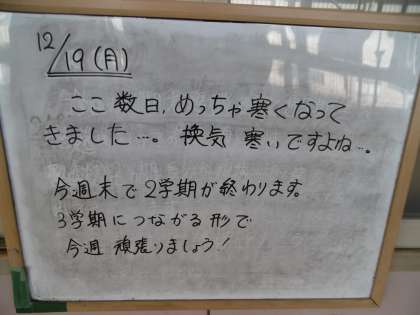 12/19(月)
ここ数日、めっちゃ寒くなって
きました…。換気 寒いですよね…。
今週末で2学期が終わります。
3学期につながる形で
今週 頑張りましょう!